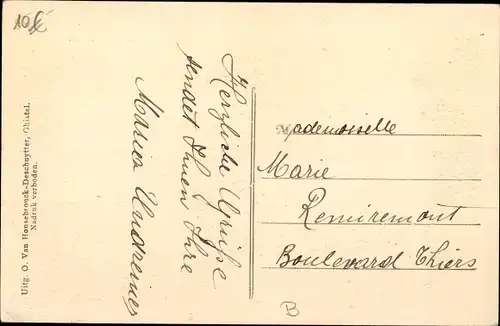 10 €
Herzliche Grüße
sendet Ihnen Ihre
Maria Andreines
Mademoiselle
Marie
Remiremont
Boulevard Thiers
B
Uitg. O. Van Honsebrouck-Deschuytter, Ghistel.
Nadruk verboden.